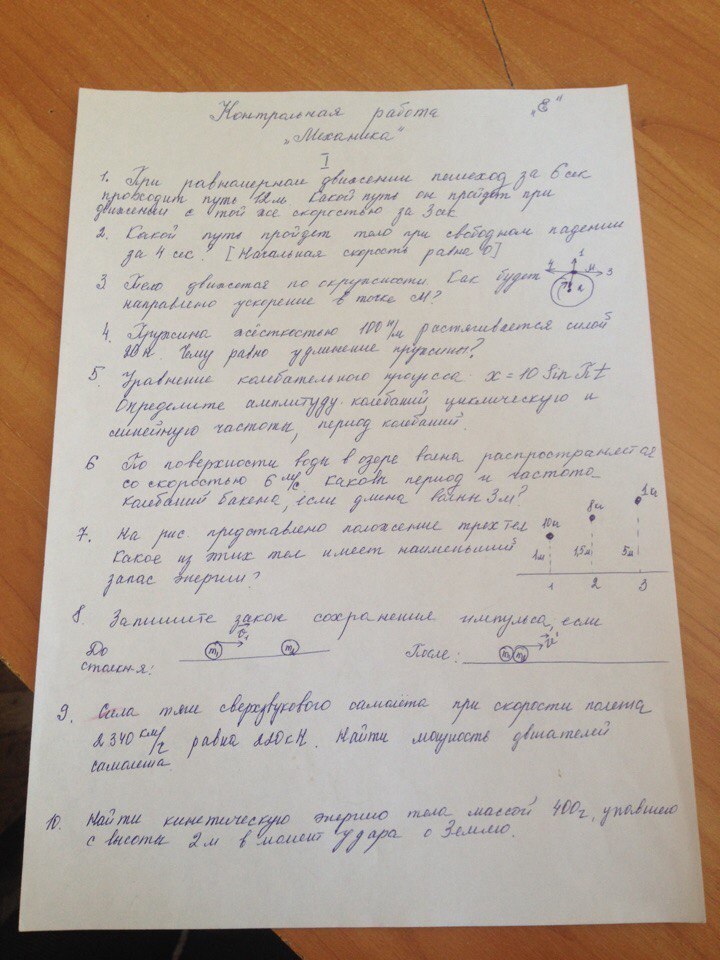 Контрольная работа „Е"
„Механика"
I
1. При равномерном движении пешеход за 6 сек
проходит путь 12 м. Какой путь он пройдет при
движении с той же скоростью за 3 сек.
2. Какой путь пройдет тело при свободном падении
за 4 сек? [Начальная скорость равна 0]
3 Тело движется по окружности. Как будет
направлено ускорение в точке М?
1
4 М 3
2
4. Пружина жёсткостью 100 н/м растягивается силой
20 н. Чему равно удлинение пружины?
5. Уравнение колебательного процесса x = 10 Sin Пt
Определите амплитуду колебаний, циклическую и
линейную частоты, период колебаний.
6 По поверхности воды в озере волна распространяется
со скоростью 6 м/с каковы период и частота
колебаний бакена, если длина волны 3 м?
7. На рис. представлено положение трех тел
Какое из этих тел имеет наименьший
запас энергии?
10 кг 8 кг 1 кг
1м 1,5м 5м
1 2 3
8. Запишите закон сохранения импульса, если
До m₁ v₁ m₂ После: m₁ m₂ v'
столкн-я:
9. Сила тяги сверхзвукового самолёта при скорости полета
2340 км/ч равна 220 кН. Найти мощность двигателей
самолета.
10. Найти кинетическую энергию тела массой 400 г, упавшего
с высоты 2 м в момент удара о Землю.